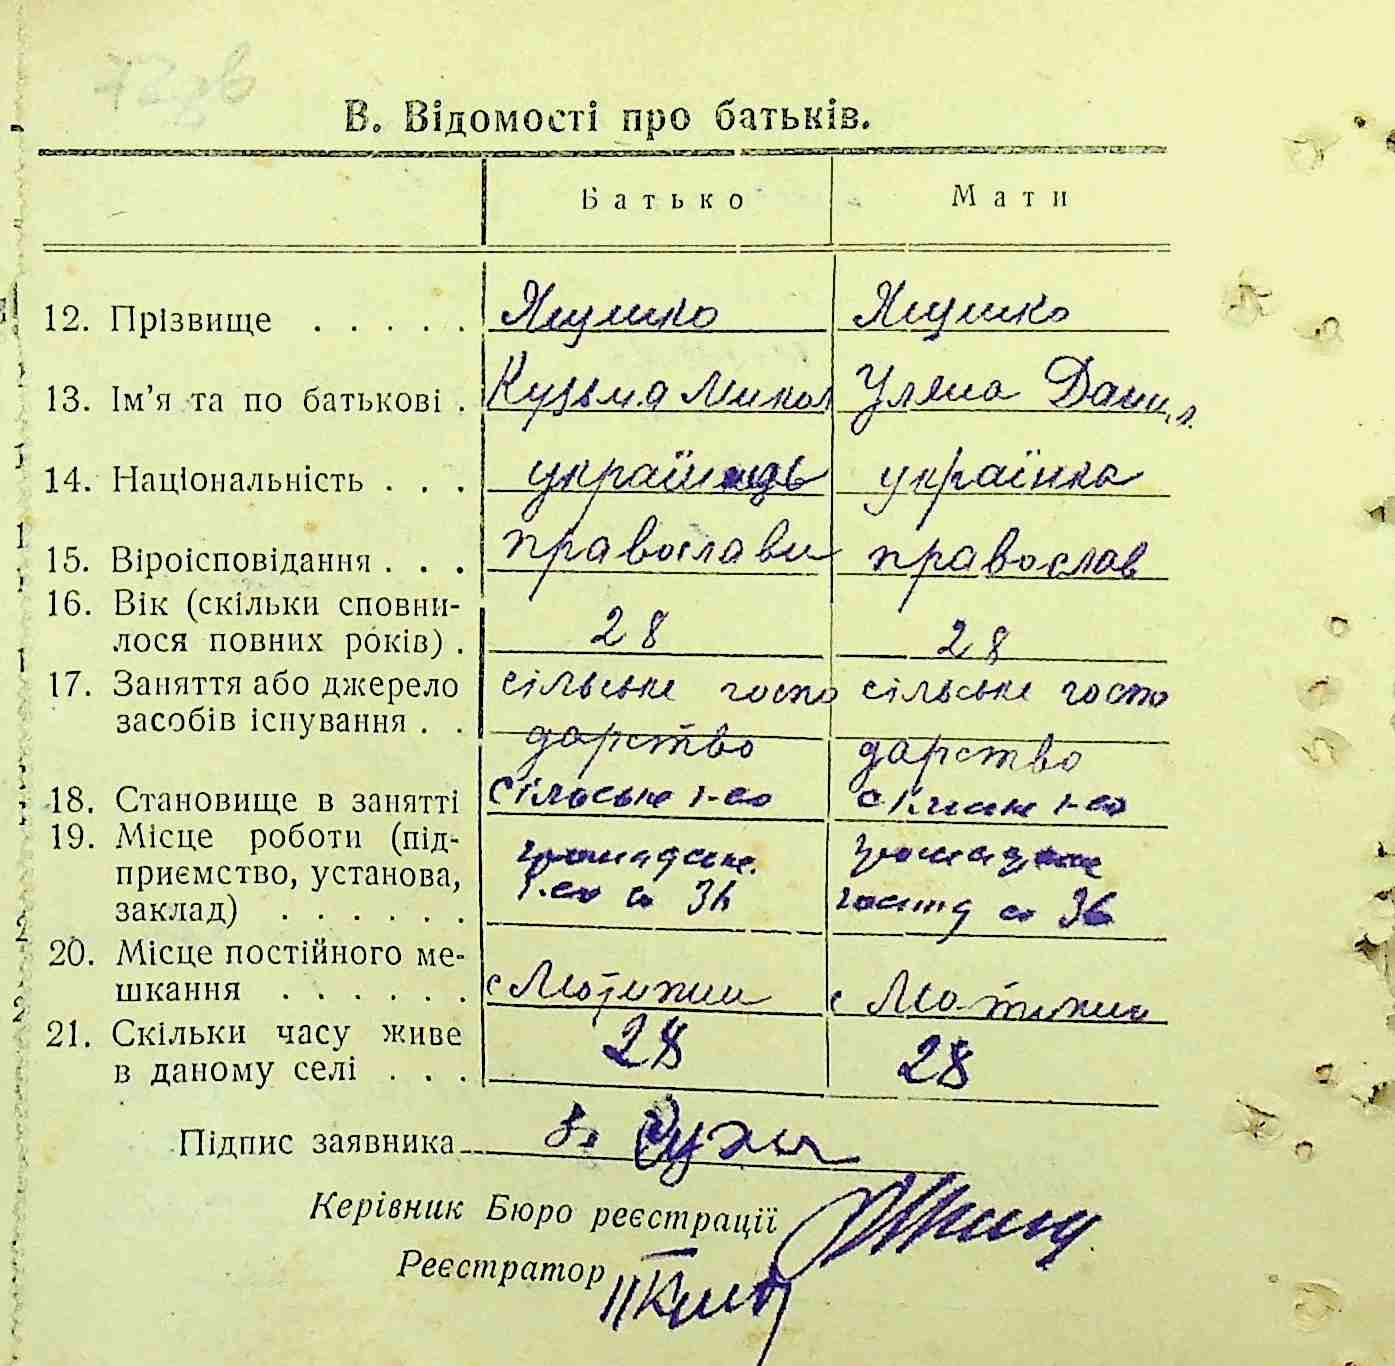 В. Відомості про батьків.
Батько Мати
12. Прізвище . . . . . Ящишко Ящишко
13. Ім’я та по батькові . Кузьма Микол Уляна Данил.
14. Національність . . . українець українка
15. Віроісповідання . . . православн православ
16. Вік (скільки сповни-
лося повних років) . 28 28
17. Заняття або джерело сільське госпо сільське госпо
засобів існування . . дарство дарство
18. Становище в занятті сільське г-во сільське г-во
19. Місце роботи (під-
приємство, установа, громадське громадське
заклад) . . . . . . г-во
20. Місце постійного ме-
шкання . . . . . . с Мотижин с Мотижин
21. Скільки часу живе
в даному селі . . . 28 28
Підпис заявника
Керівник Бюро реєстрації
Реєстратор